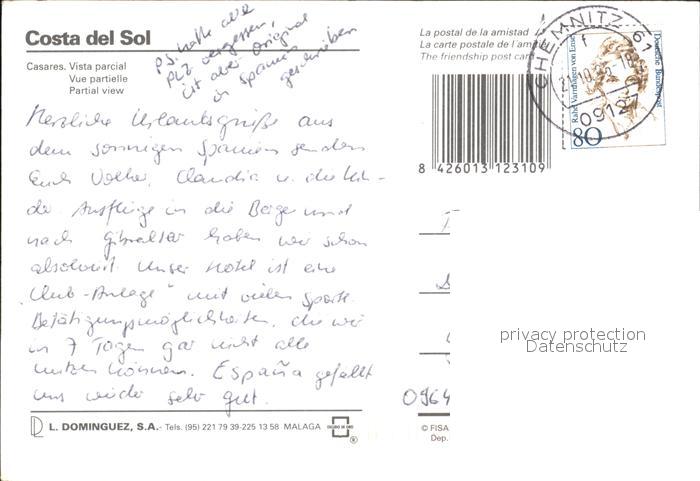 Costa del Sol
Casares. Vista parcial
Vue partielle
Partial view
PS. hatte aber
PLZ vergessen,
ist aber original
in Spanien
geschrieben
Herzliche Urlaubsgrüße aus
dem sonnigen Spanien senden
Euch Volker, Claudia u. die Kin-
der. Ausflüge in die Berge und
nach Gibraltar haben wir schon
absolviert. Unser Hotel ist eine
„Club-Anlage" mit vielen sportl.
Betätigungsmöglichkeiten, die wir
in 7 Tagen gar nicht alle
nutzen können. España gefällt
uns wieder sehr gut.
L. DOMINGUEZ, S.A.- Tels. (95) 221 79 39-225 13 58 MALAGA
®
La postal de la amistad
La carte postale de l'ami
The friendship post card
8 426013 123109
CHEMNITZ 61
f
09127
Rahel Varnhagen von Ense
Deutsche Bundespost
80
privacy protection
Datenschutz
0964
© FISA
Dep.